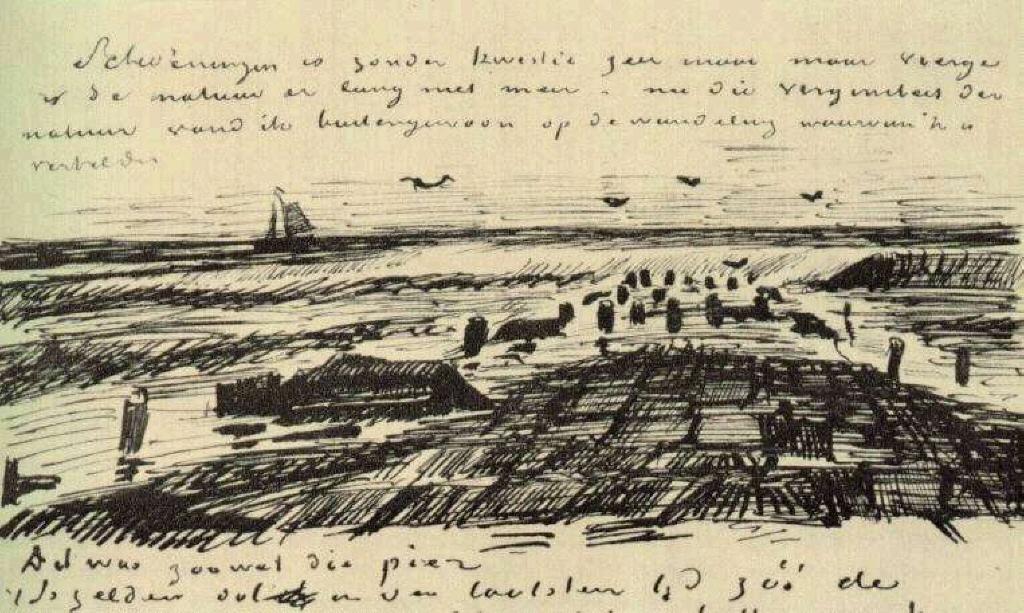 Scheveningen is zonder kwestie zeer mooi maar vierge
is de natuur er lang niet meer - nu die verginiteit der
natuur vond ik buitengewoon op de wandeling waarvan ik u
vertelde
Dit was zoowat die pier
zelden laatsten tijd zóó de